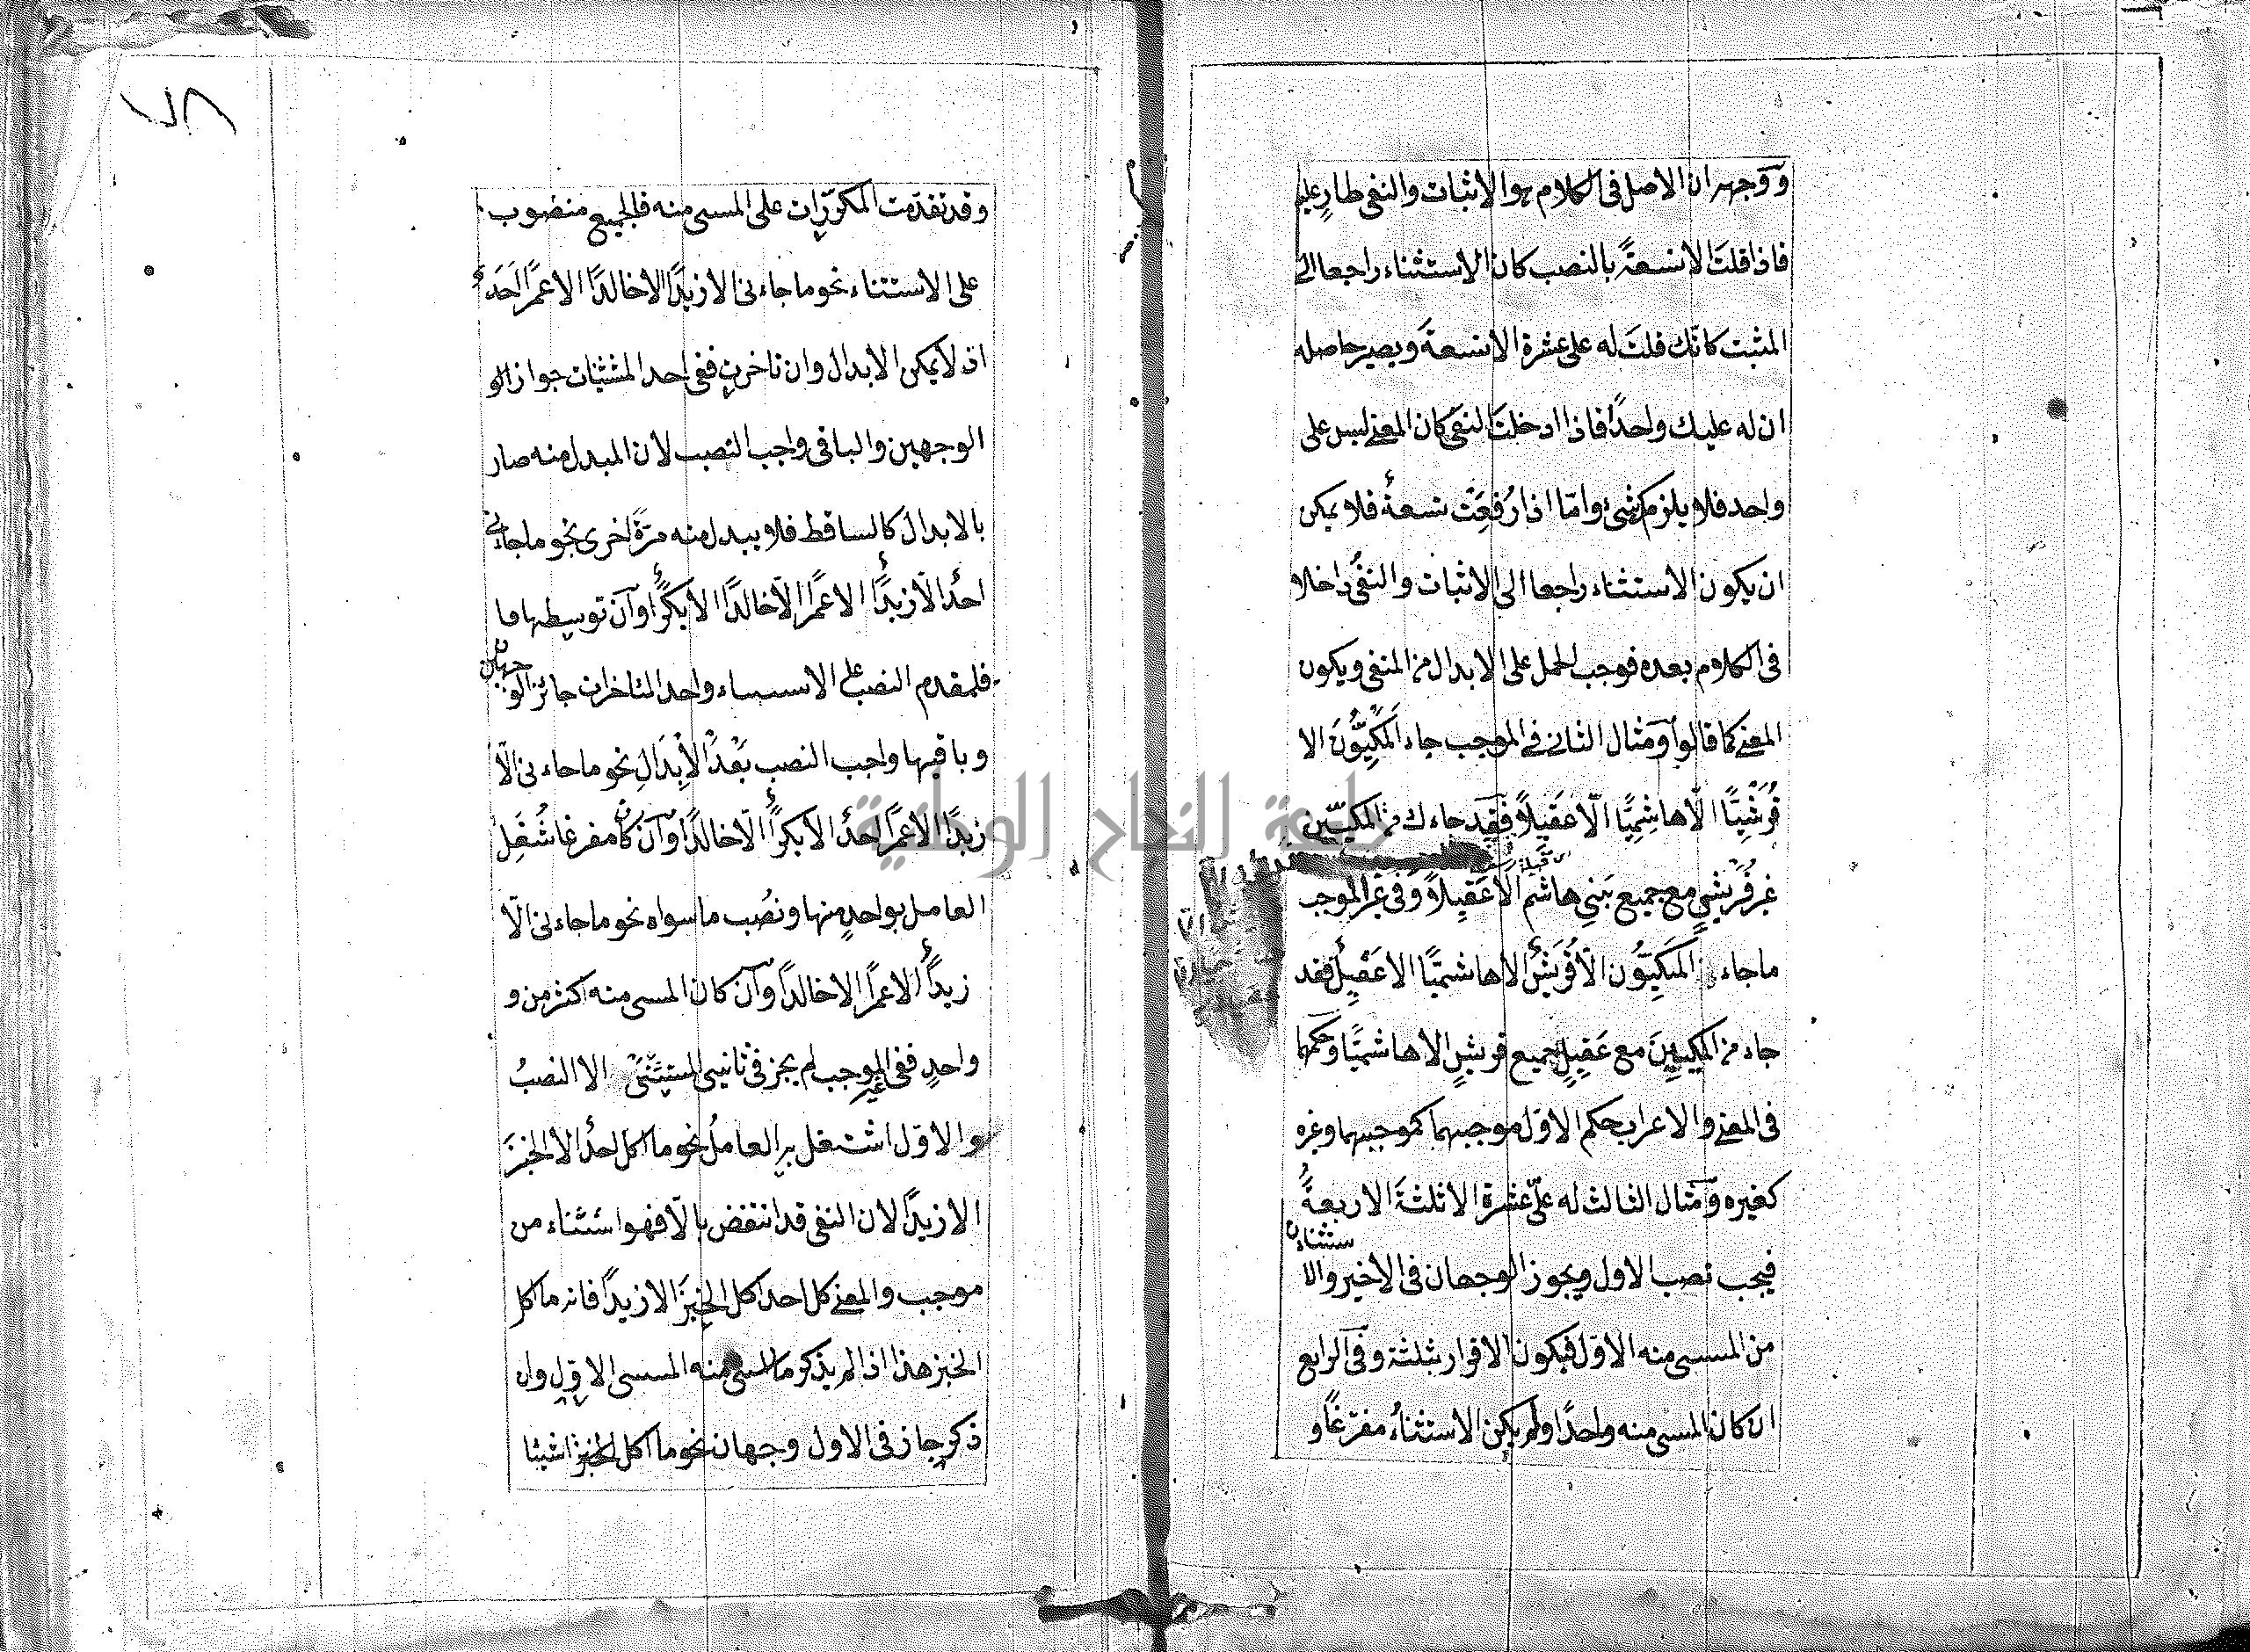 ووجهه ان الاصل فى الكلام هو الاثبات والنفى طارٍ عليه
فاذا قلتَ الا تسعةً بالنصب كان الاستثناء راجعا الى
المثبت كانّك قلتَ له على عشرة الا تسعةً ويصير حاصله
ان له عليك واحدًا فاذا ادخلتَ النفى كان المعنى ليس على
واحد فلا يلزم شئ وامّا اذا رُفِعَتْ تسعةٌ فلا يمكن
ان يكون الاستثناء راجعا الى الاثبات والنفىُ داخلا
فى الكلام بعده فوجب الحمل على الابدال من المنفى ويكون
المعنى كما قالوا ومثال الثانى فى الموجب جاء المكِّيُّونَ الا
قُرَشِيًّا الّا هاشِمِيًّا الّا عَقِيلاً فقد جاءك من المكيّين
غير قُرَيْشِيٍ مع جميع بَنِي هاشم الّا عَقِيلاً وفى غير الموجب
ما جاء المَكِيّوُن الّا قُرَيْشٌ الا هاشميًّا الا عَقِيلٌ فقد
جاء من المكيِّينَ مع عَقِيلٍ جميع قريشٍ الا هاشميًّا وحكمها
فى المعنى والاعراب حكم الاوّل موجبهما كموجبهما وغيره
كغيره ومثال الثالث له علىّ عشرة الا ثلثةً الا اربعةً
فيجب نصب الاول ويجوز الوجهان فى الاخير والاستثناءان
من المسسى منه الاوّل فيكون الاقرار بثلثة وفى الرابع
ان كان المسسى منه واحدًا ولم يكن الاستثناءُ مفرّغًا و
٧٨
وقد تقدّمت المكرّرَان على المسسى منه فالجميع منصوب
على الاستثناء نحو ما جاءنى الا زيدًا الا خالدًا الا عمرًا اَحَدٌ
اذ لا يمكن الابدال وان تاخرت ففى احد المستثنيات جواز الو
الوجهين والباقى واجب النصب لان المبدل منه صار
بالابدال كالساقط فلا يبدل منه مرّةً اخرى نحو ما جاءنى
احدٌ الّا زيدًا الا عمرًا الّا خالدًا الا بكرًا وان توسيطها فا
فلمقدم النصب على الاسسىاء واحد المتاخران جائز الوجهان
وباقيها واجب النصب بَعْدَ الاِبدَالِ نحو ما جاءنى الّا
زيدًا الا عمرًا احدٌ الا بكرًا الّا خالدًا وان كان مفرغا شُغِل
العامل بواحدٍ منها ونُصِب ما سواه نحو ما جاءنى الّا
زيدًا الا عمرًا الا خالدًا وان كان المسسى منه اكثر من و
واحدٍ ففى غير الموجب لم يجز فى ثانى المستثنى الا النصبُ
والاوّل اشتغل به العاملُ نحو ما اكل احدٌ الا الخبزَ
الا زيدًا لان النفى قد انتقض بالّا فهو استثناء من
موجب والمعنى كل احد اكل الخبزَ الا زيدًا فانه ما اكل
الخبز هذا اذا لم يذكر مالمسسى منه المسسى الاوّلِ وان
ذكر جاز فى الاول وجهان نحو ما اكل الخبز اشيئا
جامعة النجاح الوطنية